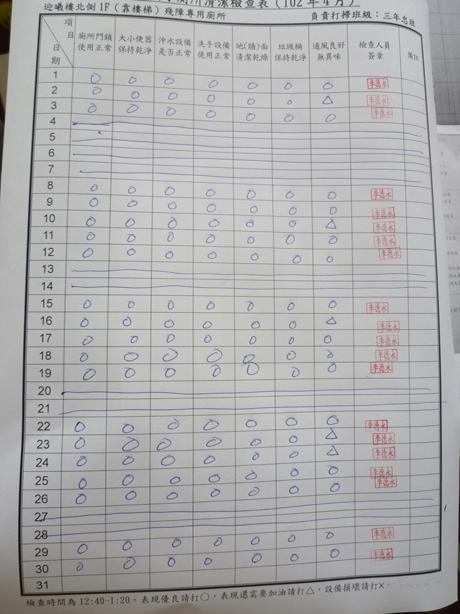 廁所清潔檢查表（102年4月）
迎曦樓北側1F（靠樓梯）殘障專用廁所 負責打掃班級：三年忠班
項目 廁所門鎖 大小便器 沖水設備 洗手設備 地(牆)面 垃圾桶 通風良好 檢查人員 備註
日期 使用正常 保持乾淨 是否正常 使用正常 清潔乾燥 保持乾淨 無異味 簽章
1 ○ ○ ○ ○ ○ ○ ○
2 ○ ○ ○ ○ ○ ○ △
3 ○ ○ ○ ○ ○ ○ ○
4
5
6
7
8 ○ ○ ○ ○ ○ ○ ○
9 ○ ○ ○ ○ ○ ○ ○
10 ○ ○ ○ ○ ○ ○ △
11 ○ ○ ○ ○ ○ ○ ○
12 ○ ○ ○ ○ ○ ○ ○
13
14
15 ○ ○ ○ ○ ○ ○ ○
16 ○ ○ ○ ○ ○ ○ △
17 ○ ○ ○ ○ ○ ○ ○
18 ○ ○ ○ ○ ○ ○ ○
19 ○ ○ ○ ○ ○ ○ ○
20
21
22 ○ ○ ○ ○ ○ ○ ○
23 ○ ○ ○ ○ ○ ○ △
24 ○ ○ ○ ○ ○ ○ △
25 ○ ○ ○ ○ ○ ○ ○
26 ○ ○ ○ ○ ○ ○ ○
27
28
29 ○ ○ ○ ○ ○ ○ ○
30 ○ ○ ○ ○ ○ ○ ○
31
檢查時間為12:40-1:20。表現優良請打○，表現還需要加油請打△，設備損壞請打×。